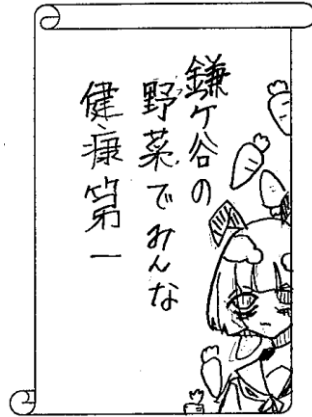 鎌ケ谷の
野菜でみんな
健康第一